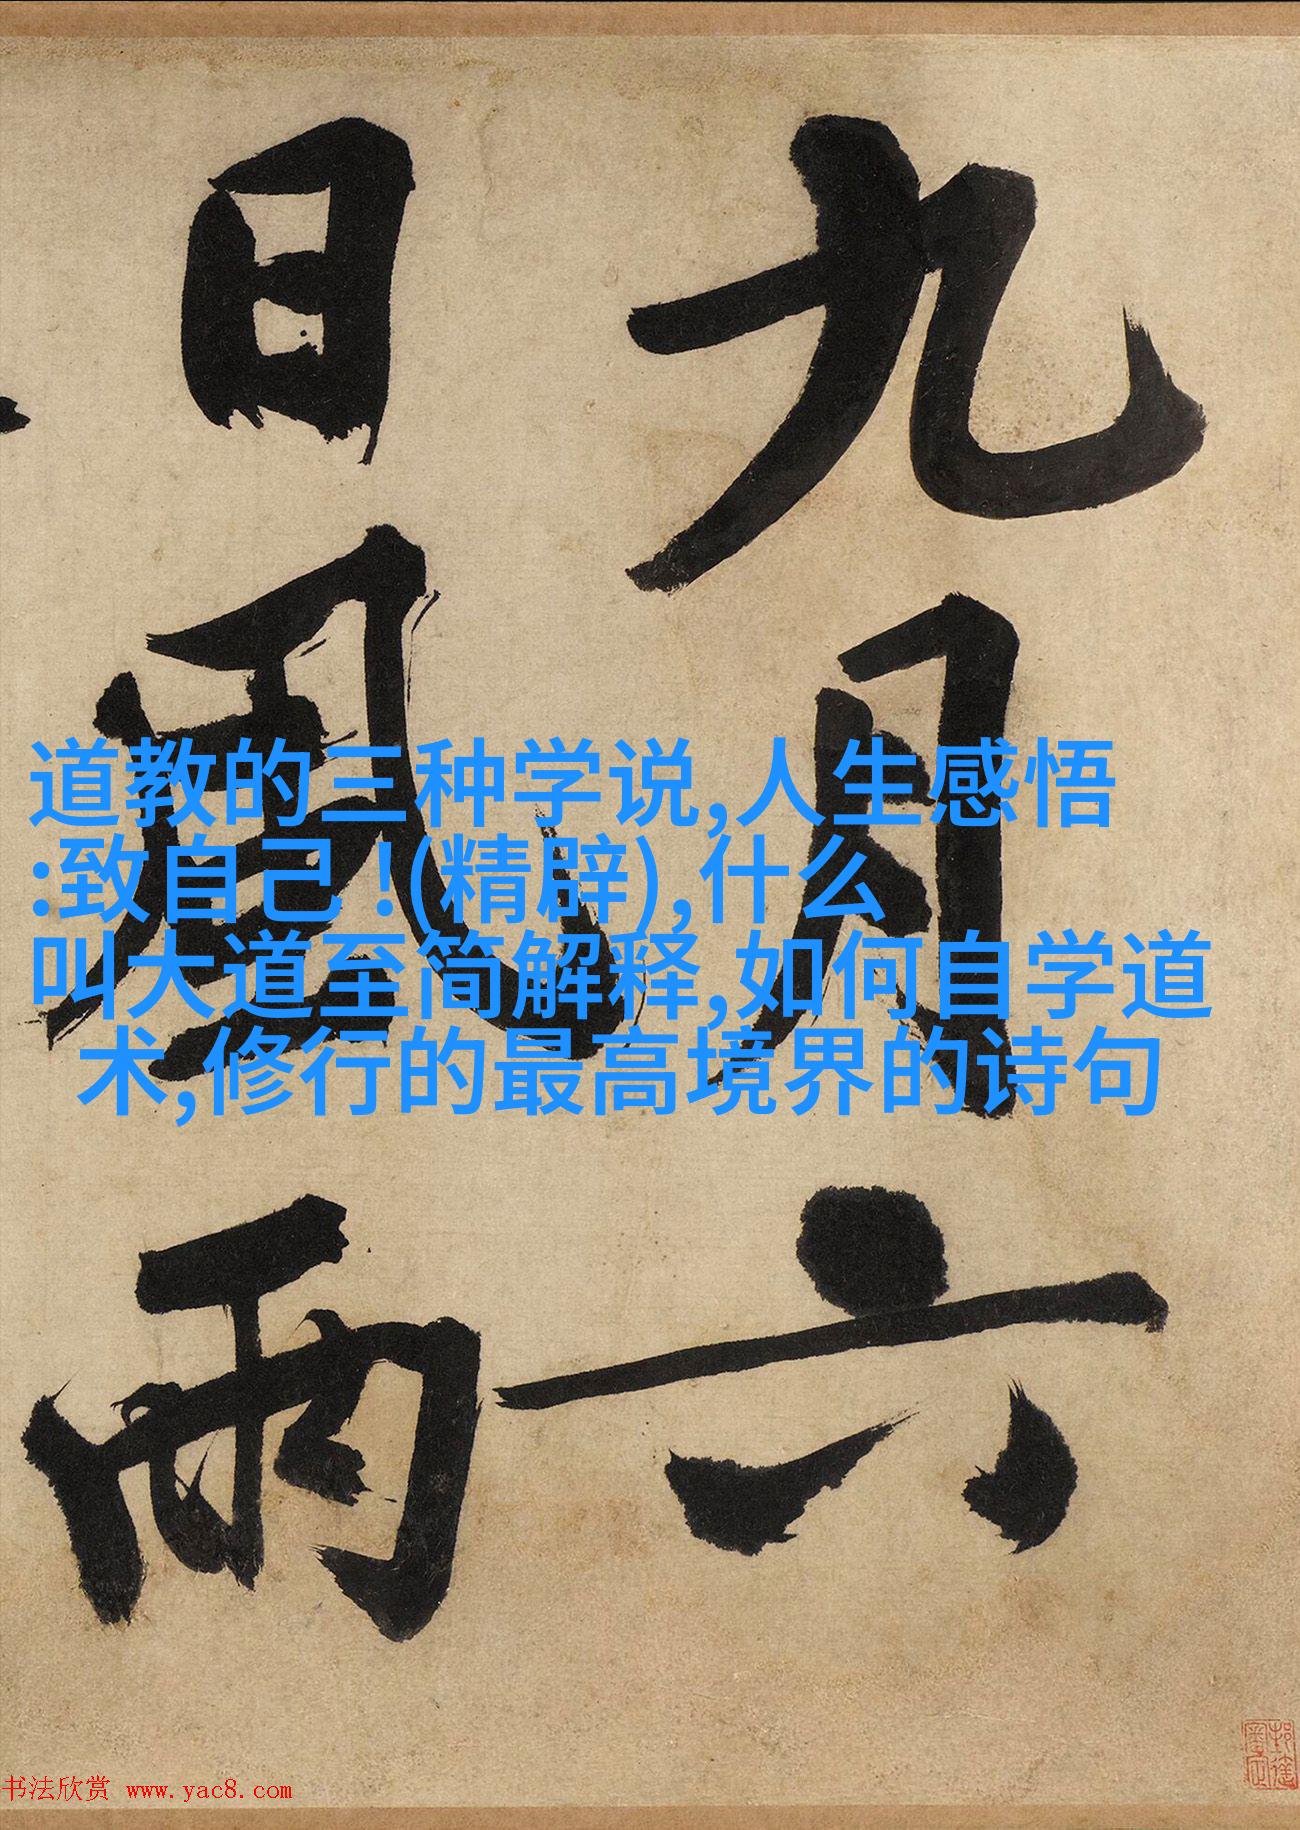 九月六
日風雨
道教的三种学说,人生感悟
:致自己 !(精辟),什么
叫大道至简解释,如何自学道
术,修行的最高境界的诗句
书法欣赏 www.yac8.com